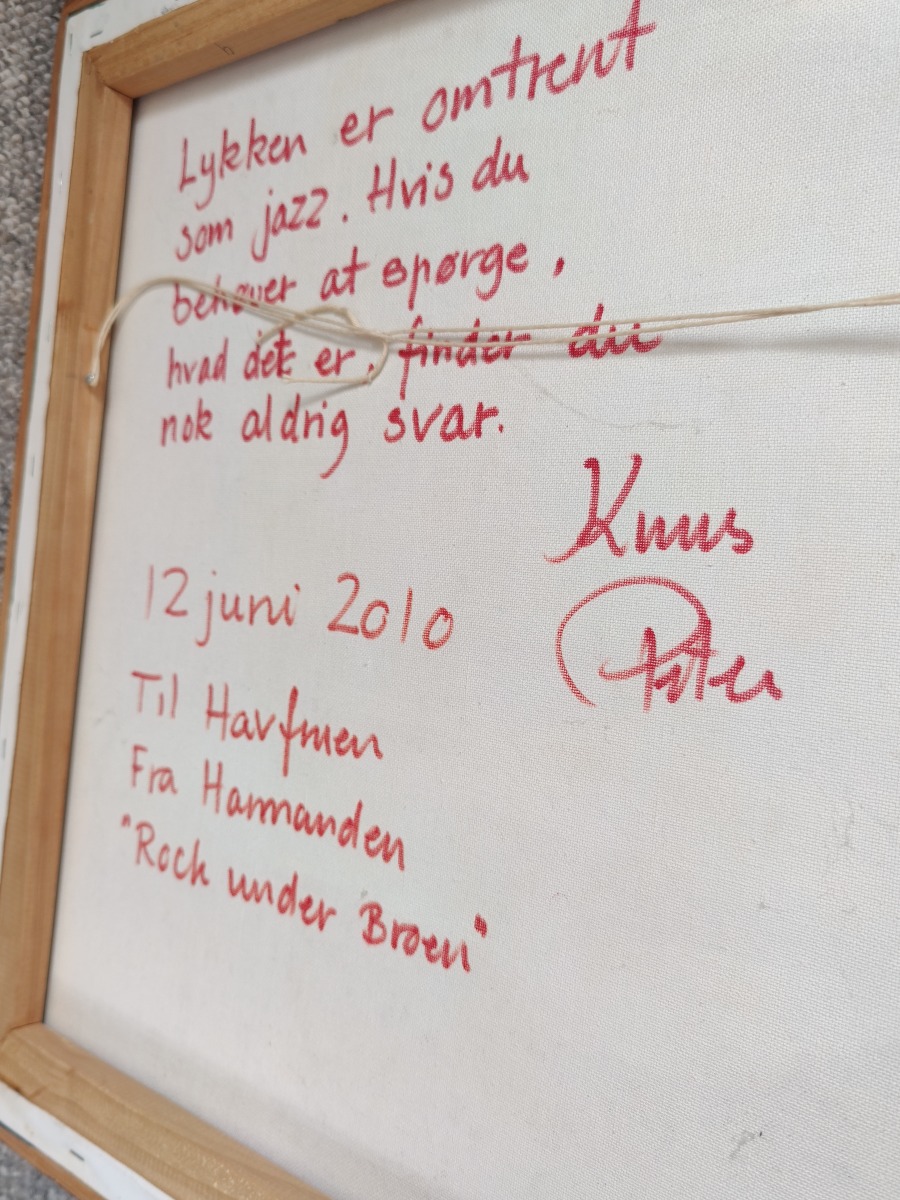 Lykken er omtrent
som jazz. Hvis du
behøver at spørge,
hvad det er, finder du
nok aldrig svar.
Knus
Peter
12 juni 2010
Til Havfruen
Fra Havmanden
"Rock under Broen"